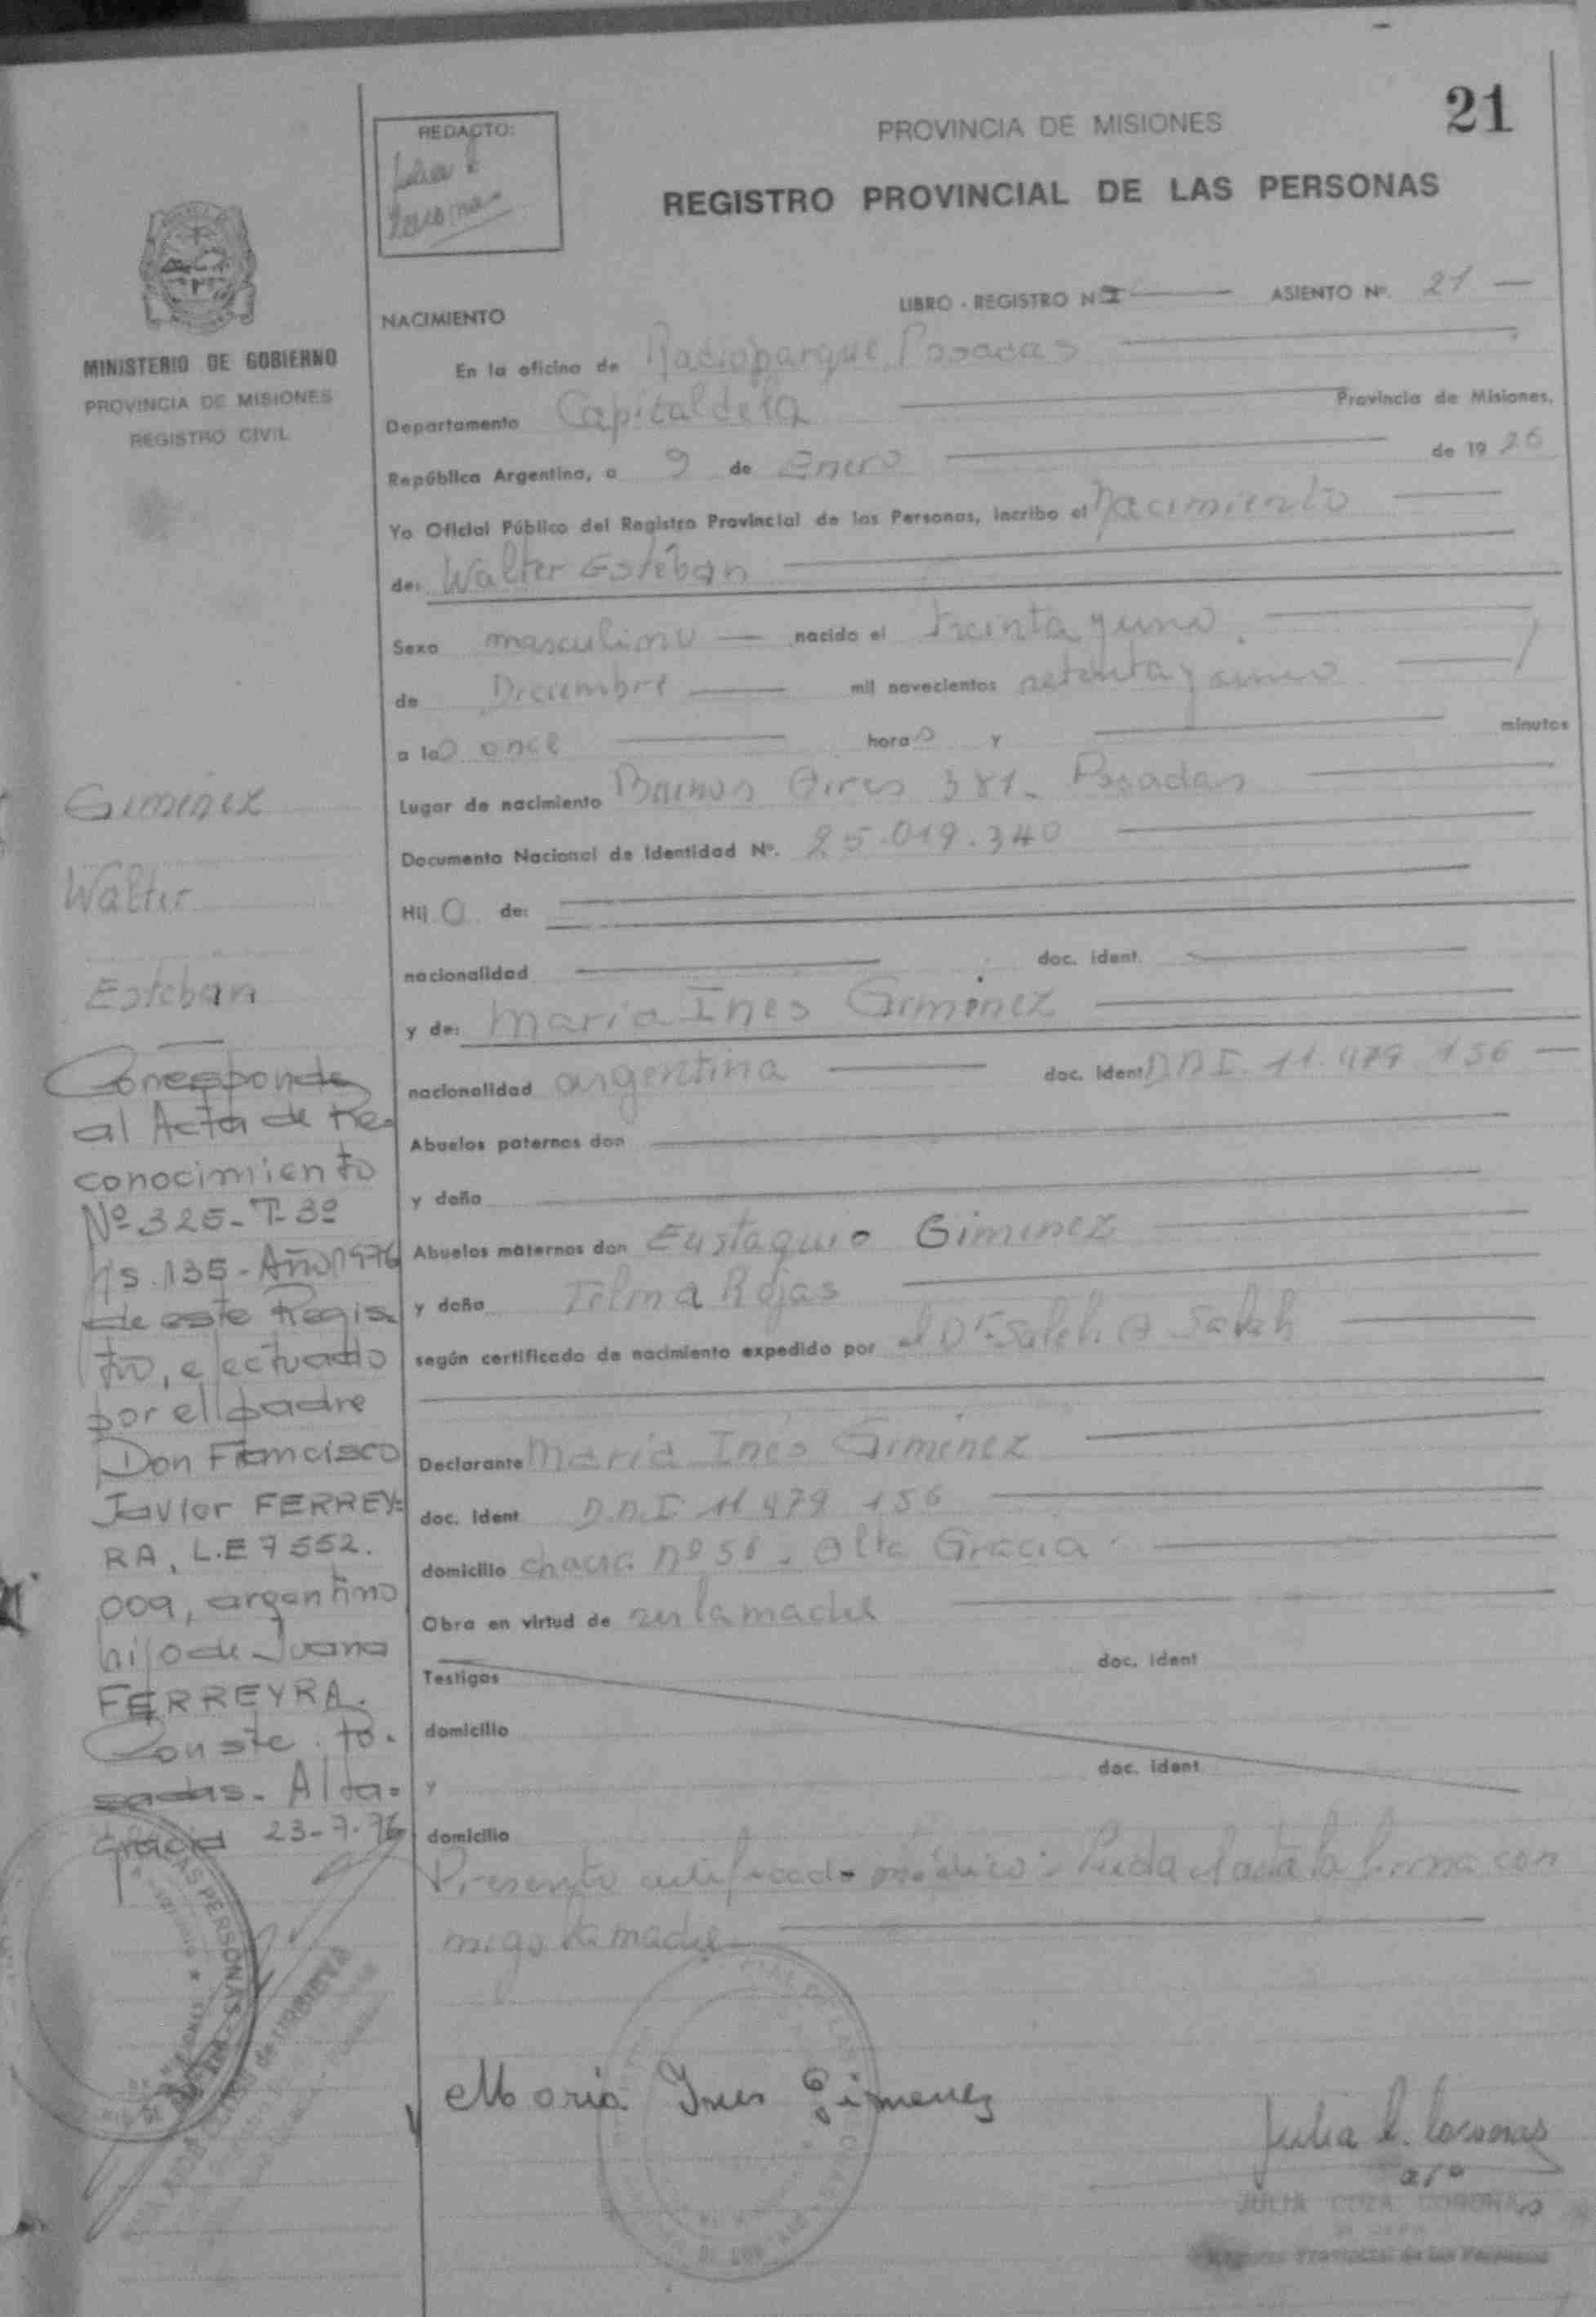 21
PROVINCIA DE MISIONES
REGISTRO PROVINCIAL DE LAS PERSONAS
REDACTO:
MINISTERIO DE GOBIERNO
PROVINCIA DE MISIONES
REGISTRO CIVIL
NACIMIENTO
LIBRO - REGISTRO Nº I ASIENTO Nº. 21
En la oficina de Radioparque, Posadas
Departamento Capital de la Provincia de Misiones,
República Argentina, a 9 de Enero de 19
Yo Oficial Público del Registro Provincial de las Personas, incribo el nacimiento
de: Walter Esteban
Sexo masculino nacido el treinta y uno
de Diciembre mil novecientos setenta y cinco
a las once horas y minutos
Lugar de nacimiento Buenos Aires 381 - Posadas
Documento Nacional de Identidad Nº. 25.019.340
Hij o de:
nacionalidad doc. ident.
y de: Maria Ines Gimenez
nacionalidad argentina doc. ident D.N.I. 11.479.156
Abuelos paternos don
y doña
Abuelos maternos don Eustaquio Gimenez
y doña Telma Rojas
según certificado de nacimiento expedido por el Dr. Saleh A Saleh
Declarante Maria Ines Gimenez
doc. ident D.N.I 11 479 156
domicilio chacra nº - Alta Gracia
Obra en virtud de ser la madre
Testigos doc. ident
domicilio
y doc. ident
domicilio
Presento certificado médico: Leida el acta la firma con
migo la madre
Maria Ines Gimenez
Registro Provincial de las Personas
Gimenez
Walter
Esteban
Corresponde
al Acta de Re-
conocimiento
Nº 325 - T- 3º
fs. 135 - Año 1976
de este Regis-
tro, efectuado
por el padre
Don Francisco
Javier FERREY=
RA, L.E 7 552.
009, argentino
hijo de Juana
FERREYRA.
Conste. Po-
sadas - Alta=
Gracia 23-7-76